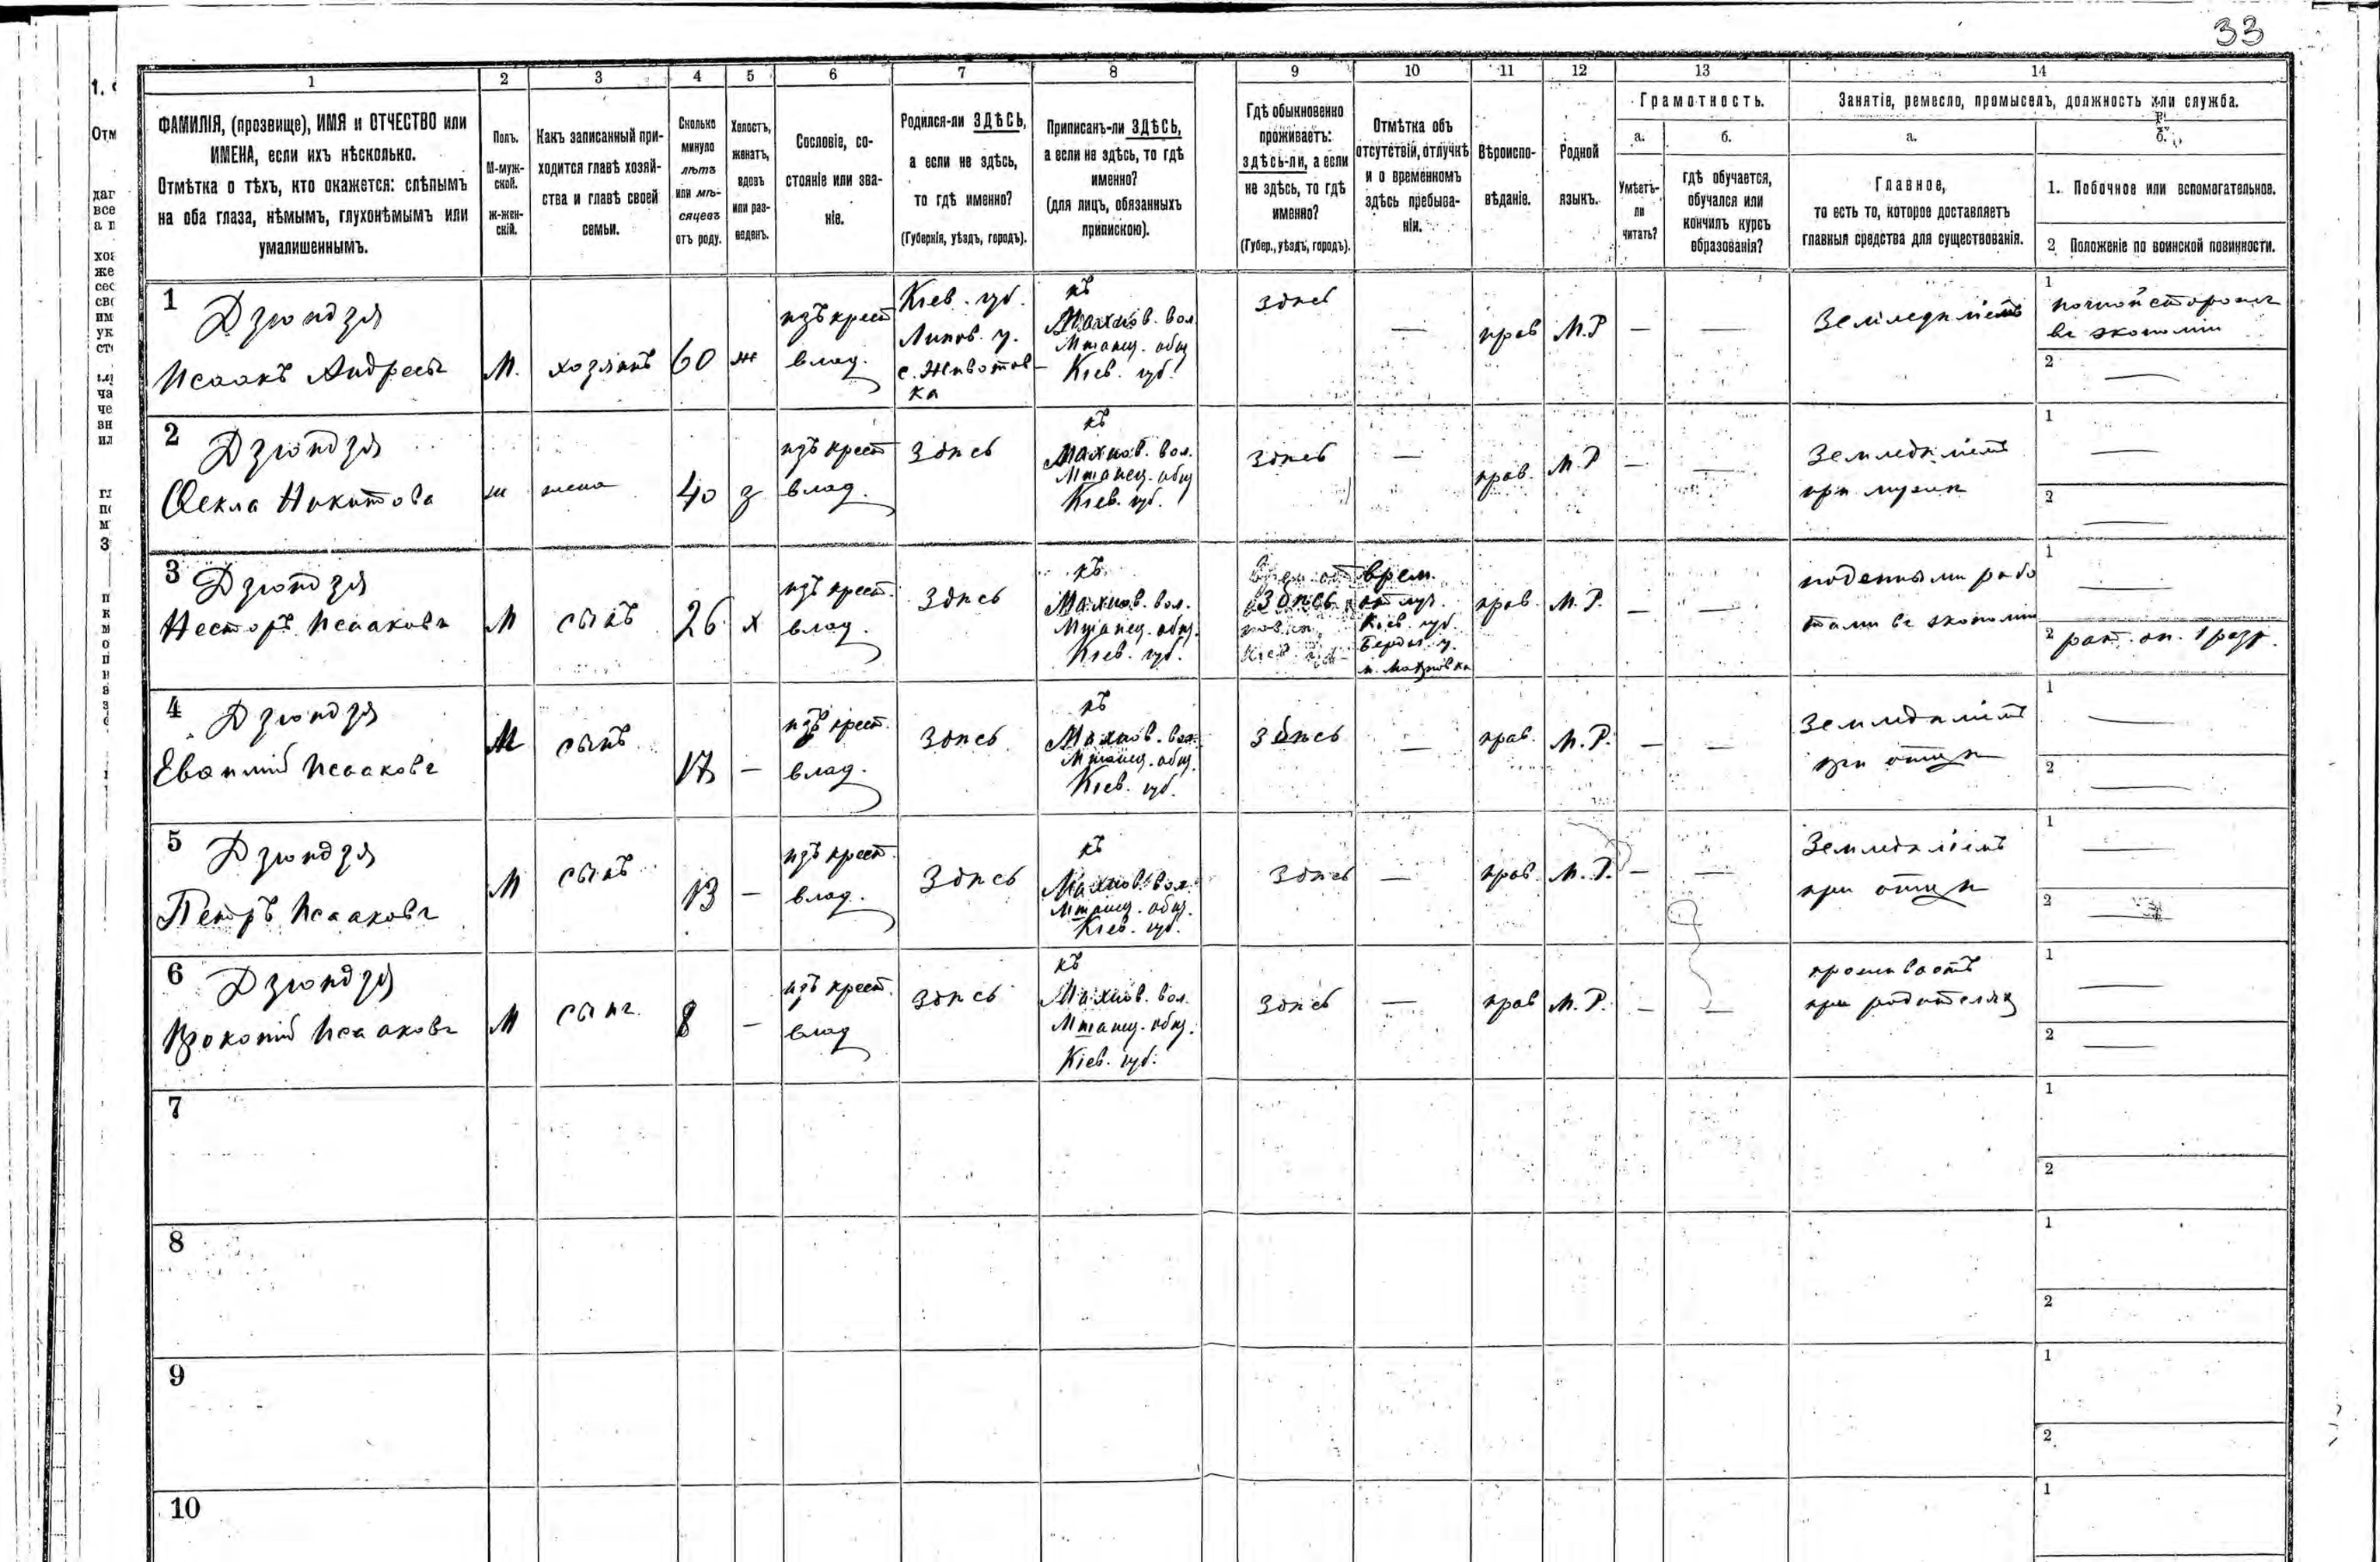 33
1 2 3 4 5 6 7 8 9 10 11 12 13 14
ФАМИЛІЯ, (прозвище), ИМЯ и ОТЧЕСТВО или
ИМЕНА, если ихъ нѣсколько.
Отмѣтка о тѣхъ, кто окажется: слѣпымъ
на оба глаза, нѣмымъ, глухонѣмымъ или
умалишеннымъ.
Полъ.
М-муж-
ской.
ж-жен-
скій.
Какъ записанный при-
ходится главѣ хозяй-
ства и главѣ своей
семьи.
Сколько
минуло
лѣтъ
или мѣ-
сяцевъ
отъ роду.
Холостъ,
женатъ,
вдовъ
или раз-
веденъ.
Сословіе, со-
стояніе или зва-
ніе.
Родился-ли ЗДѢСЬ,
а если не здѣсь,
то гдѣ именно?
(Губернія, уѣздъ, городъ).
Приписанъ-ли ЗДѢСЬ,
а если не здѣсь, то гдѣ
именно?
(для лицъ, обязанныхъ
припискою).
Гдѣ обыкновенно
проживаетъ:
здѣсь-ли, а если
не здѣсь, то гдѣ
именно?
(Губер., уѣздъ, городъ).
Отмѣтка объ
отсутствіи, отлучкѣ
и о временномъ
здѣсь пребыва-
ніи.
Вѣроиспо-
вѣданіе.
Родной
языкъ.
Грамотность.
а.
Умѣетъ-
ли
читать?
б.
гдѣ обучается,
обучался или
кончилъ курсъ
образованія?
Занятіе, ремесло, промыселъ, должность или служба.
а.
Главное,
то есть то, которое доставляетъ
главныя средства для существованія.
б.
1. Побочное или вспомогательное.
2 Положеніе по воинской повинности.
1
Дзюндзя
Исаакъ Андреевъ
М.
хозяинъ
60
ж
изъ крест
влад.
Кіев. губ.
Липов. у.
с. Животов-
ка
къ
Махнов. вол.
Мшанец. общ
Кіев. губ.
здѣсь
—
прав
М.Р
—
—
Земледѣліемъ
1
въ экономіи
2 —
2
Дзюндзя
Ѳекла Никитова
ж
жена
40
з
изъ крест
влад.
здѣсь
къ
Махнов. вол.
Мшанец. общ
Кіев. губ.
здѣсь
—
прав.
М.Р
—
—
Земледѣліемъ
при мужѣ
1 —
2 —
3
Дзюндзя
Несторъ Исааковъ
М
сынъ
26
х
изъ крест.
влад.
здѣсь
къ
Махнов. вол.
Мшанец. общ.
Кіев. губ.
здѣсь
врем.
отлуч.
Кіев. губ.
Бердич. у.
м. Махновка
прав.
М.Р.
—
—
поденными рабо
тами въ экономіи
1 —
2 рат. оп. 1 разр.
4
Дзюндзя
Евфимій Исааковъ
М
сынъ
17
—
изъ крест.
влад.
здѣсь
къ
Махнов. вол.
Мшанец. общ.
Кіев. губ.
здѣсь
—
прав.
М.Р.
—
—
Земледѣліемъ
при отцѣ
1 —
2 —
5
Дзюндзя
Петръ Исааковъ
М
сынъ
13
—
изъ крест.
влад.
здѣсь
къ
Махнов. вол.
Мшанец. общ.
Кіев. губ.
здѣсь
—
прав.
М.Р.
—
—
Земледѣліемъ
при отцѣ
1 —
2 —
6
Дзюндзя
Прокопій Исааковъ
М
сынъ
8
—
изъ крест.
влад
здѣсь
къ
Махнов. вол.
Мшанец. общ.
Кіев. губ.
здѣсь
—
прав
М.Р.
—
—
проживаетъ
при родителяхъ
1 —
2 —
7
1
2
8
1
2
9
1
2
10
1